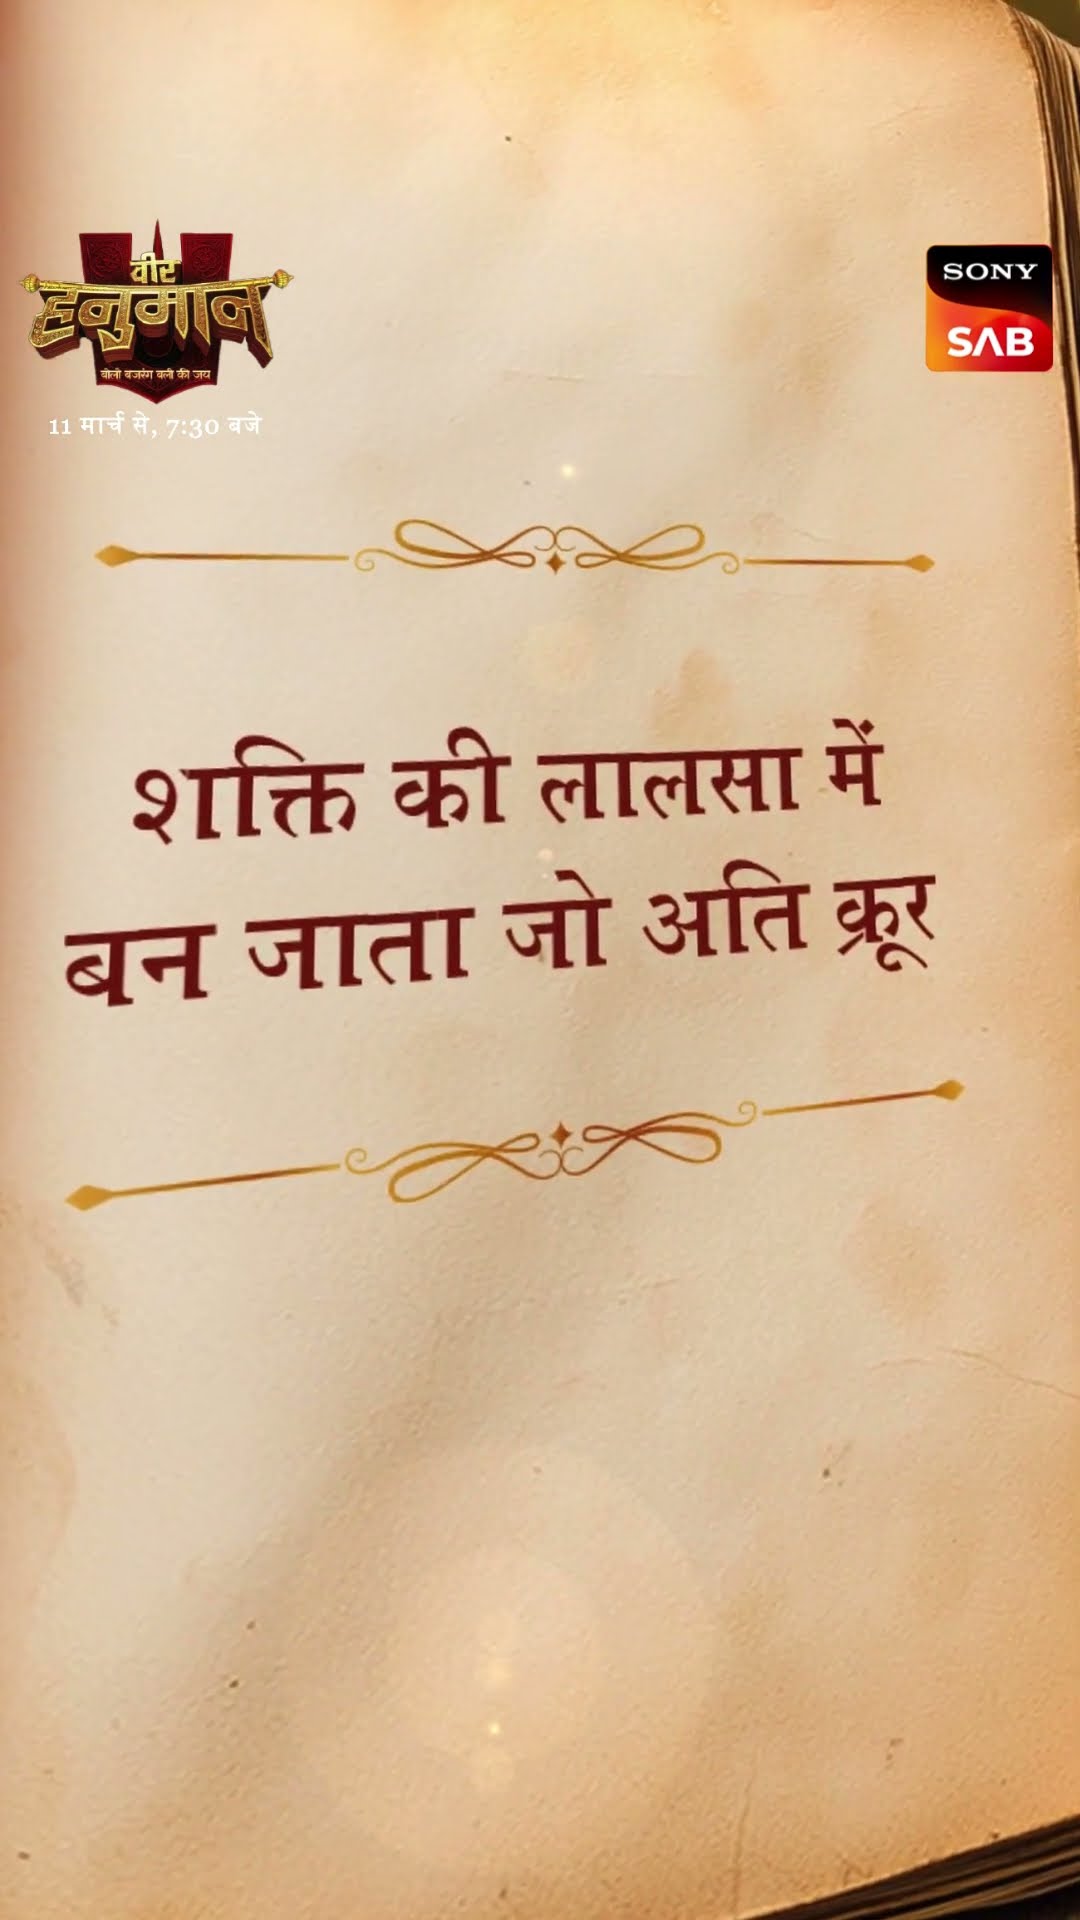 वीर
हनुमान
बोलो बजरंग बली की जय
11 मार्च से, 7:30 बजे
SONY
SAB
शक्ति की लालसा में
बन जाता जो अति क्रूर